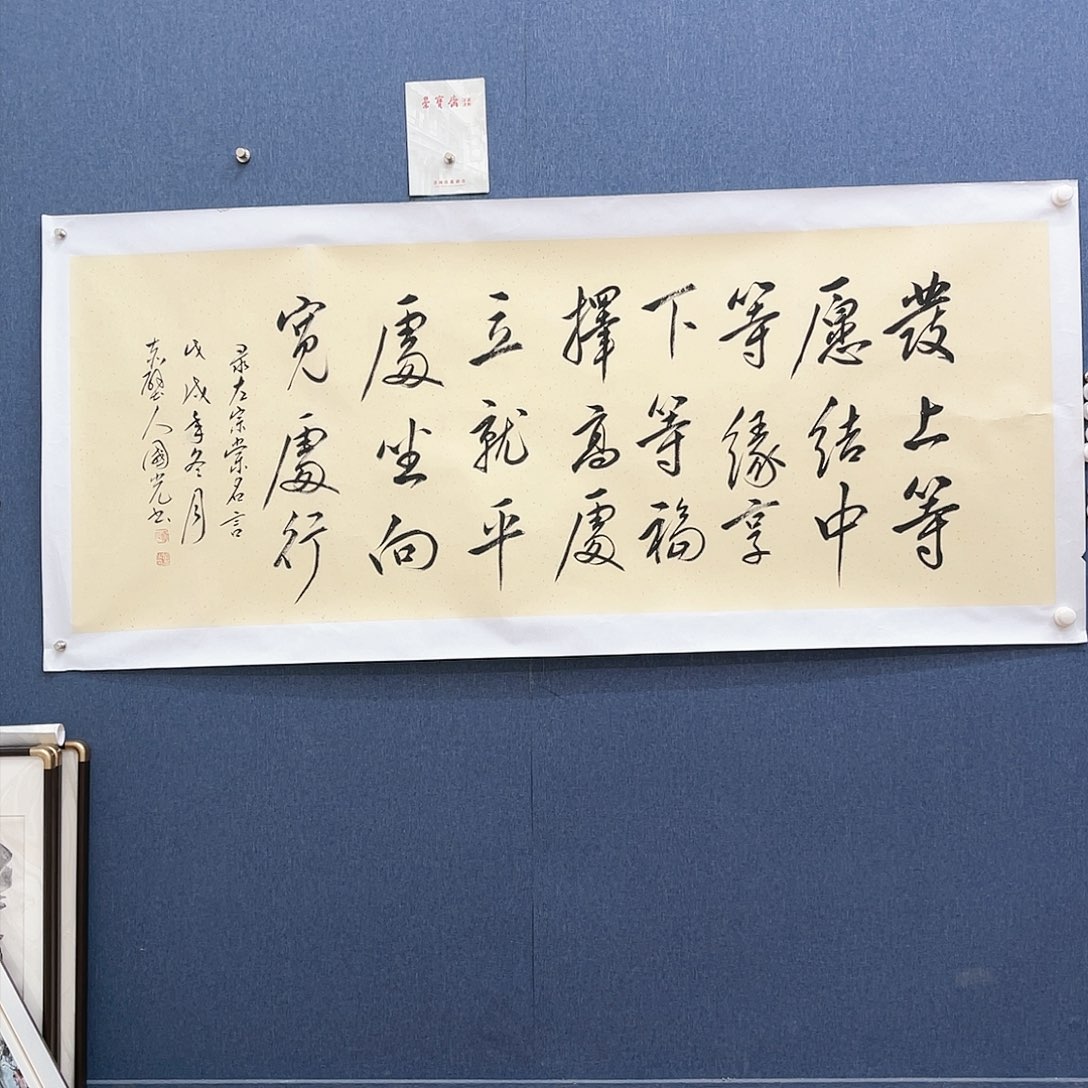 榮寶齋
發上等
愿結中
等緣享
下等福
擇高處
立就平
處坐向
寬處行
录左宗棠名言
戊戌年冬月
赤壁人國光书